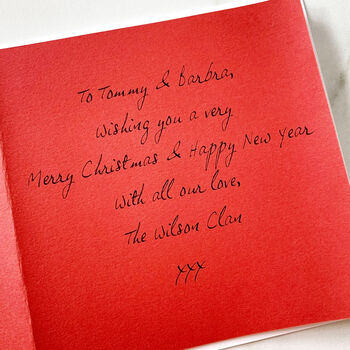 To Tommy & Barbra,
wishing you a very
Merry Christmas & Happy New Year
with all our love,
The Wilson Clan
xxx